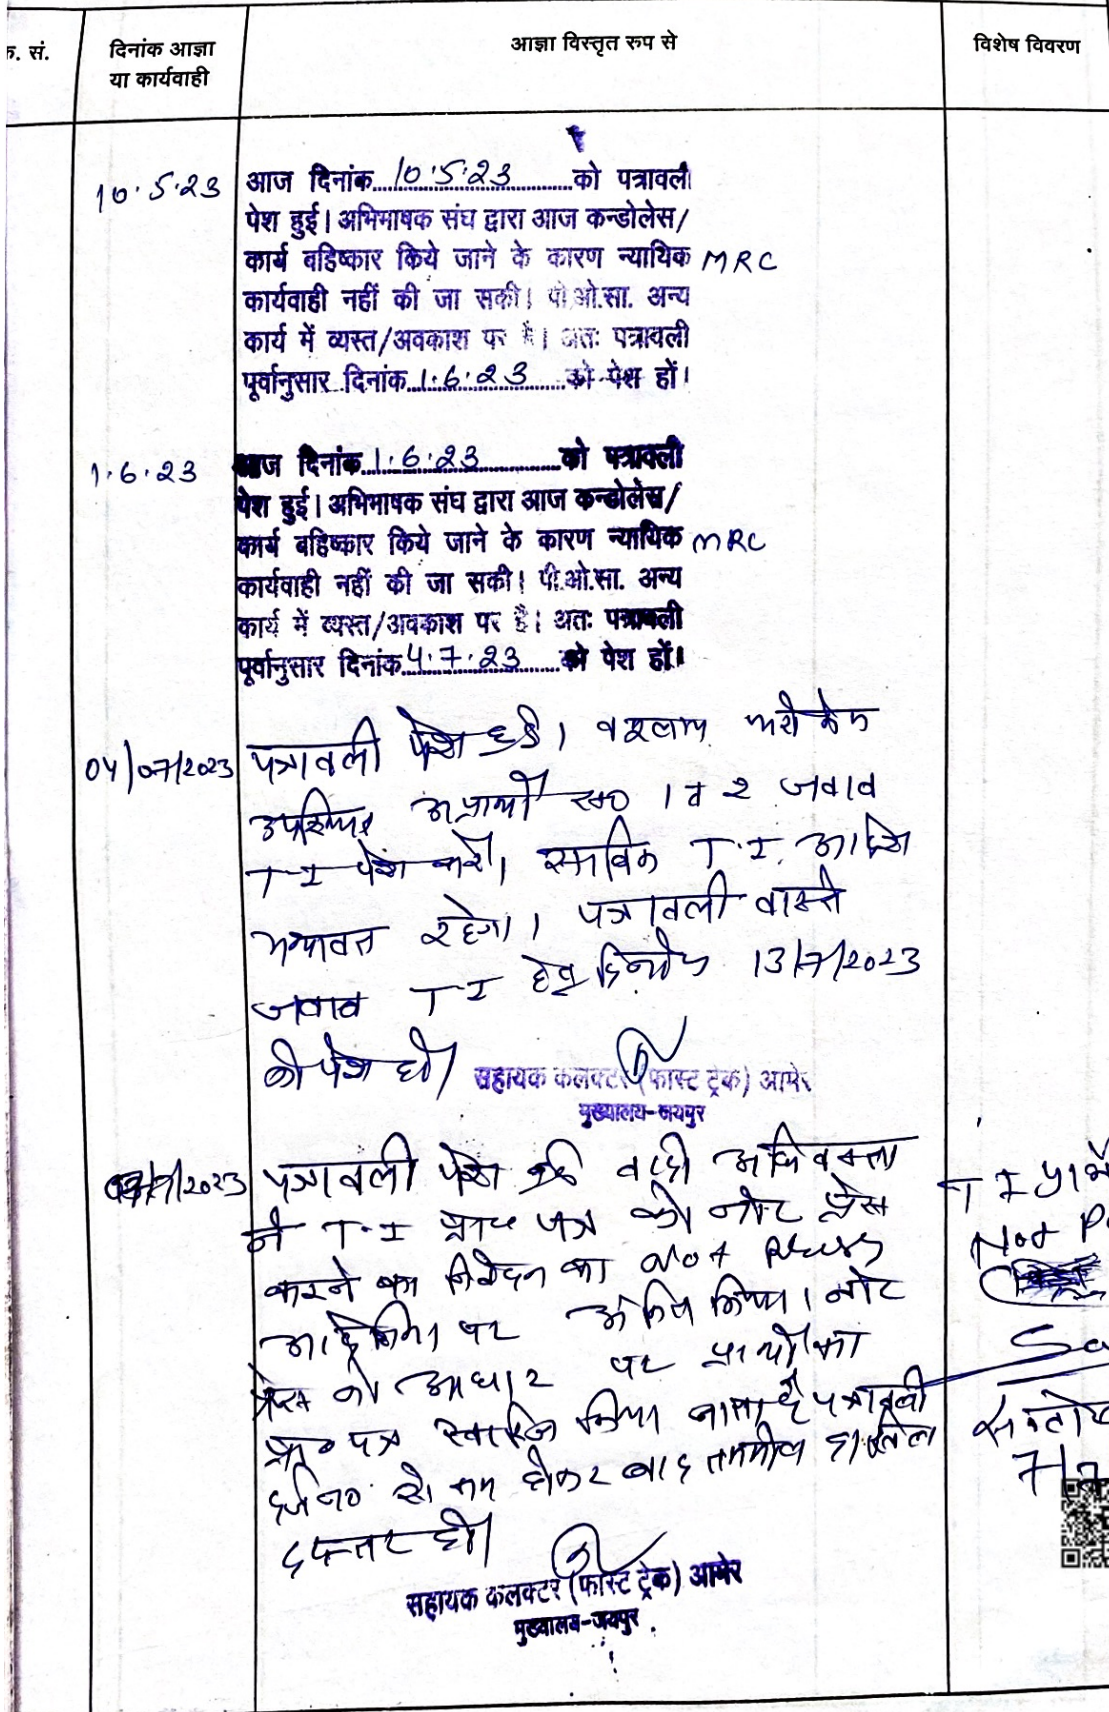 क. सं.
दिनांक आज्ञा
या कार्यवाही
आज्ञा विस्तृत रुप से
विशेष विवरण
10.5.23
आज दिनांक 10.5.23 को पत्रावली
पेश हुई। अभिभाषक संघ द्वारा आज कन्डोलेस/
कार्य बहिष्कार किये जाने के कारण न्यायिक MRC
कार्यवाही नहीं की जा सकी। पी.ओ.सा. अन्य
कार्य में व्यस्त/अवकाश पर है। अतः पत्रावली
पूर्वानुसार दिनांक 1.6.23 को पेश हों।
1.6.23
आज दिनांक 1.6.23 को पत्रावली
पेश हुई। अभिभाषक संघ द्वारा आज कन्डोलेस/
कार्य बहिष्कार किये जाने के कारण न्यायिक MRC
कार्यवाही नहीं की जा सकी। पी.ओ.सा. अन्य
कार्य में व्यस्त/अवकाश पर है। अतः पत्रावली
पूर्वानुसार दिनांक 4.7.23 को पेश हों।
04/07/2023
पत्रावली पेश हुई।
उपस्थित अप्रार्थी 1 व 2 जवाब
T-I पेश करे। T.I. आदेश
यथावत रहेगा। पत्रावली वास्ते
जवाब T-I हेतु दिनांक 13/7/2023
को पेश हो।
सहायक कलक्टर (फास्ट ट्रेक) आमेर
मुख्यालय-जयपुर
/7/2023
पत्रावली पेश हुई वादी अधिवक्ता
ने T.I प्रा० पत्र को नोट प्रेस
करने का निवेदन का Not Press
पर अंकित किया। नोट
प्रेस के आधार पर प्रार्थी का
प्रा० पत्र खारिज किया जाता है पत्रावली
से कम होकर बाद तकमील दाखिल
दफ्तर हो।
सहायक कलक्टर (फास्ट ट्रेक) आमेर
मुख्यालय-जयपुर
T I
Not P